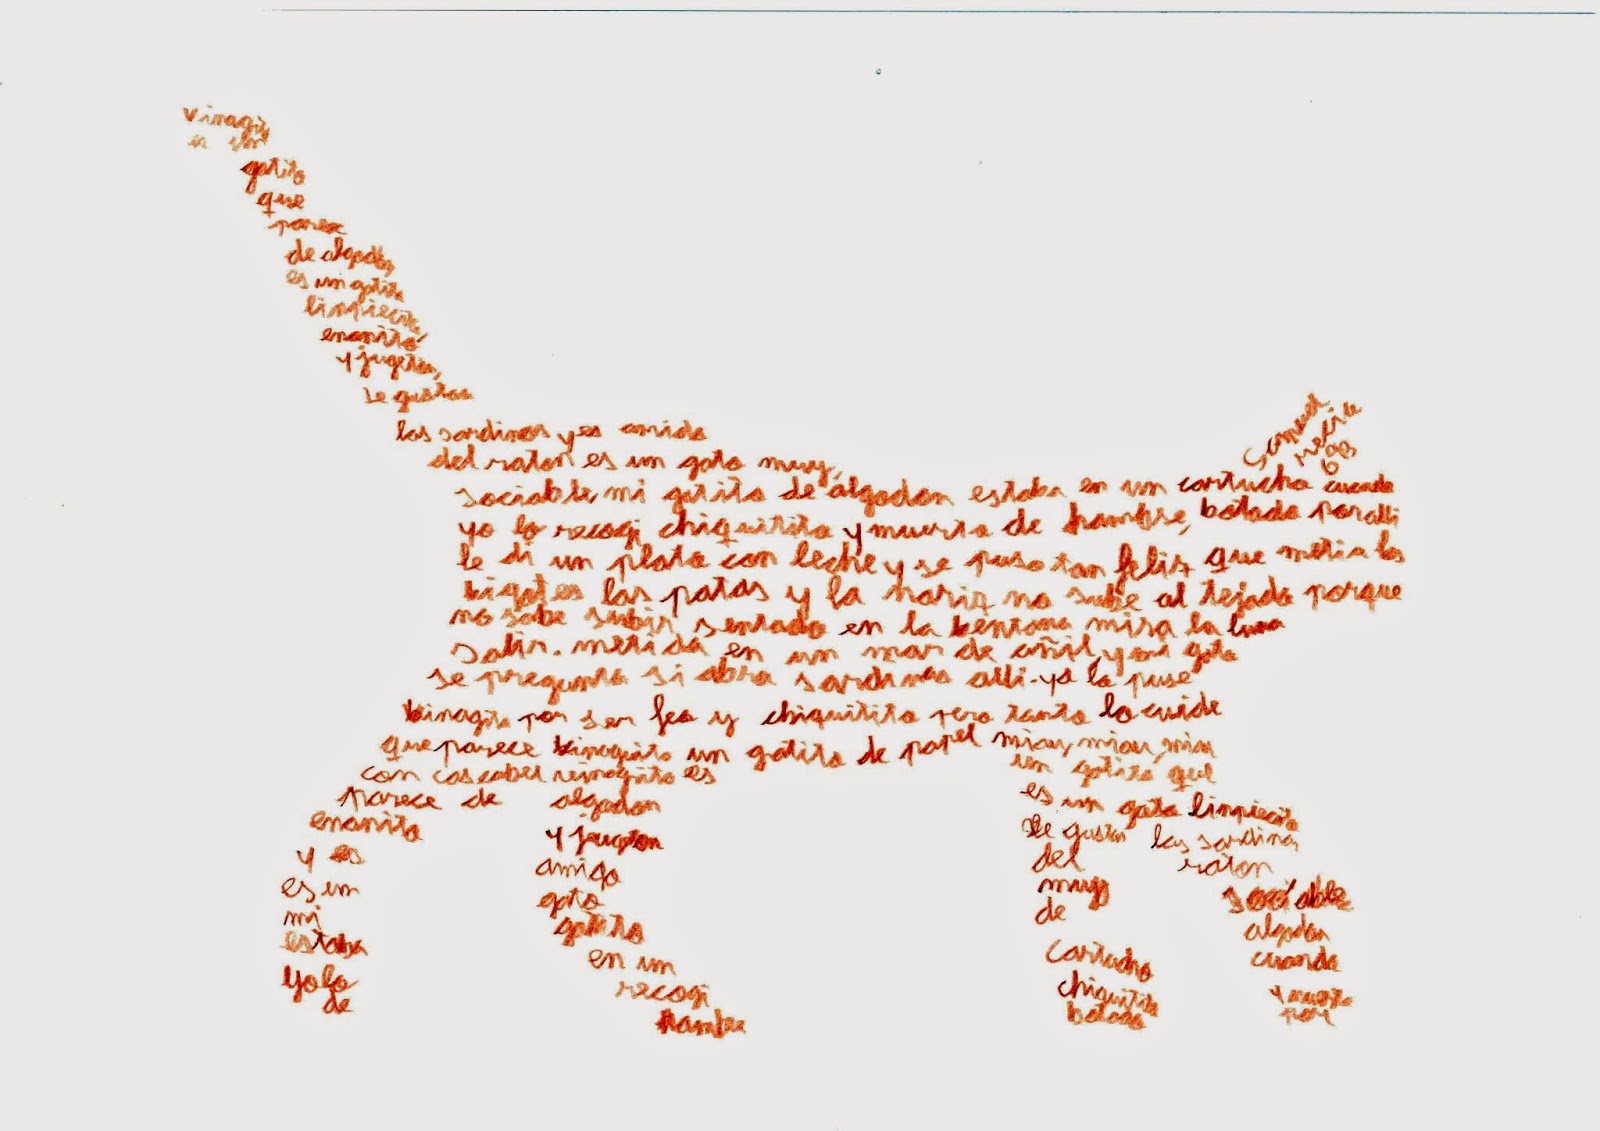 vinagrito
es un
gatito
que
parece
de algodon,
es un gatito
limpiecito,
enanito
y jugeton,
le gustan
las sardinas y es amido
del raton es un gato muy,
sociable, mi gatito de algodon estaba en un cartucho cuando
yo lo recogi chiquitito y muerto de hambre, botado por alli
le di un plato con leche y se puso tan feliz que metia los
bigotes las patas y la nariz no sube al tejado porque
no sabe subir sentado en la bentana mira la luna
salir. metida en un mar de añil, y mi gato
se pregunta si abra sardinas alli. yo lo puse
binagito por ser feo y chiquitito pero tanto lo cuide
que parece un gatito de papel miau, miau, miau
con cascabel es un gatito que
parece de algodon es un gato limpiecito
enanito y jugeton le gustan las sardinas
y es amigo del raton
es un gato muy sociable
mi gatito de algodon
estaba en un cartucho cuando
yo lo recogi chiquitito y muerto
de hambre botado por